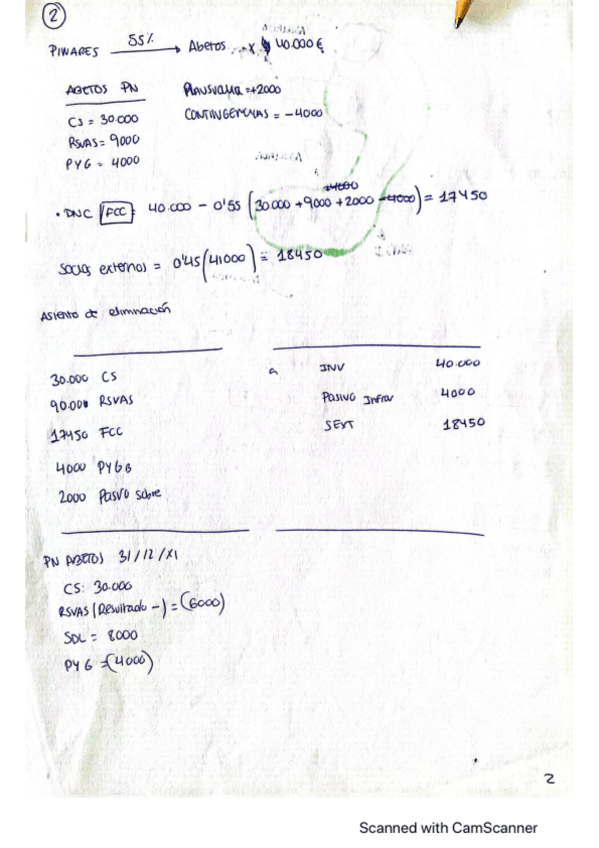 2
PINARES 55% Abetos x 40.000 €
ABETOS PN
CS = 30.000
RSVAS = 9000
PYG = 4000
PLUSVALIA = +2000
CONTINGENCIAS = -4000
4000
• DNC FCC = 40.000 - 0'55 (30.000 + 9000 + 2000 - 4000) = 17450
Socios externos = 0'45 (41000) = 18450
Asiento de eliminación
30.000 CS
90.000 RSVAS
17450 FCC
4000 PYGB
2000 Pasivo sobre
a INV 40.000
Pasivo Infrav 4000
SEXT 18450
PN ABETOS 31/12/X1
CS: 30.000
RSVAS (Resultado -) = (6000)
SDL = 8000
PYG = (4000)
2
Scanned with CamScanner